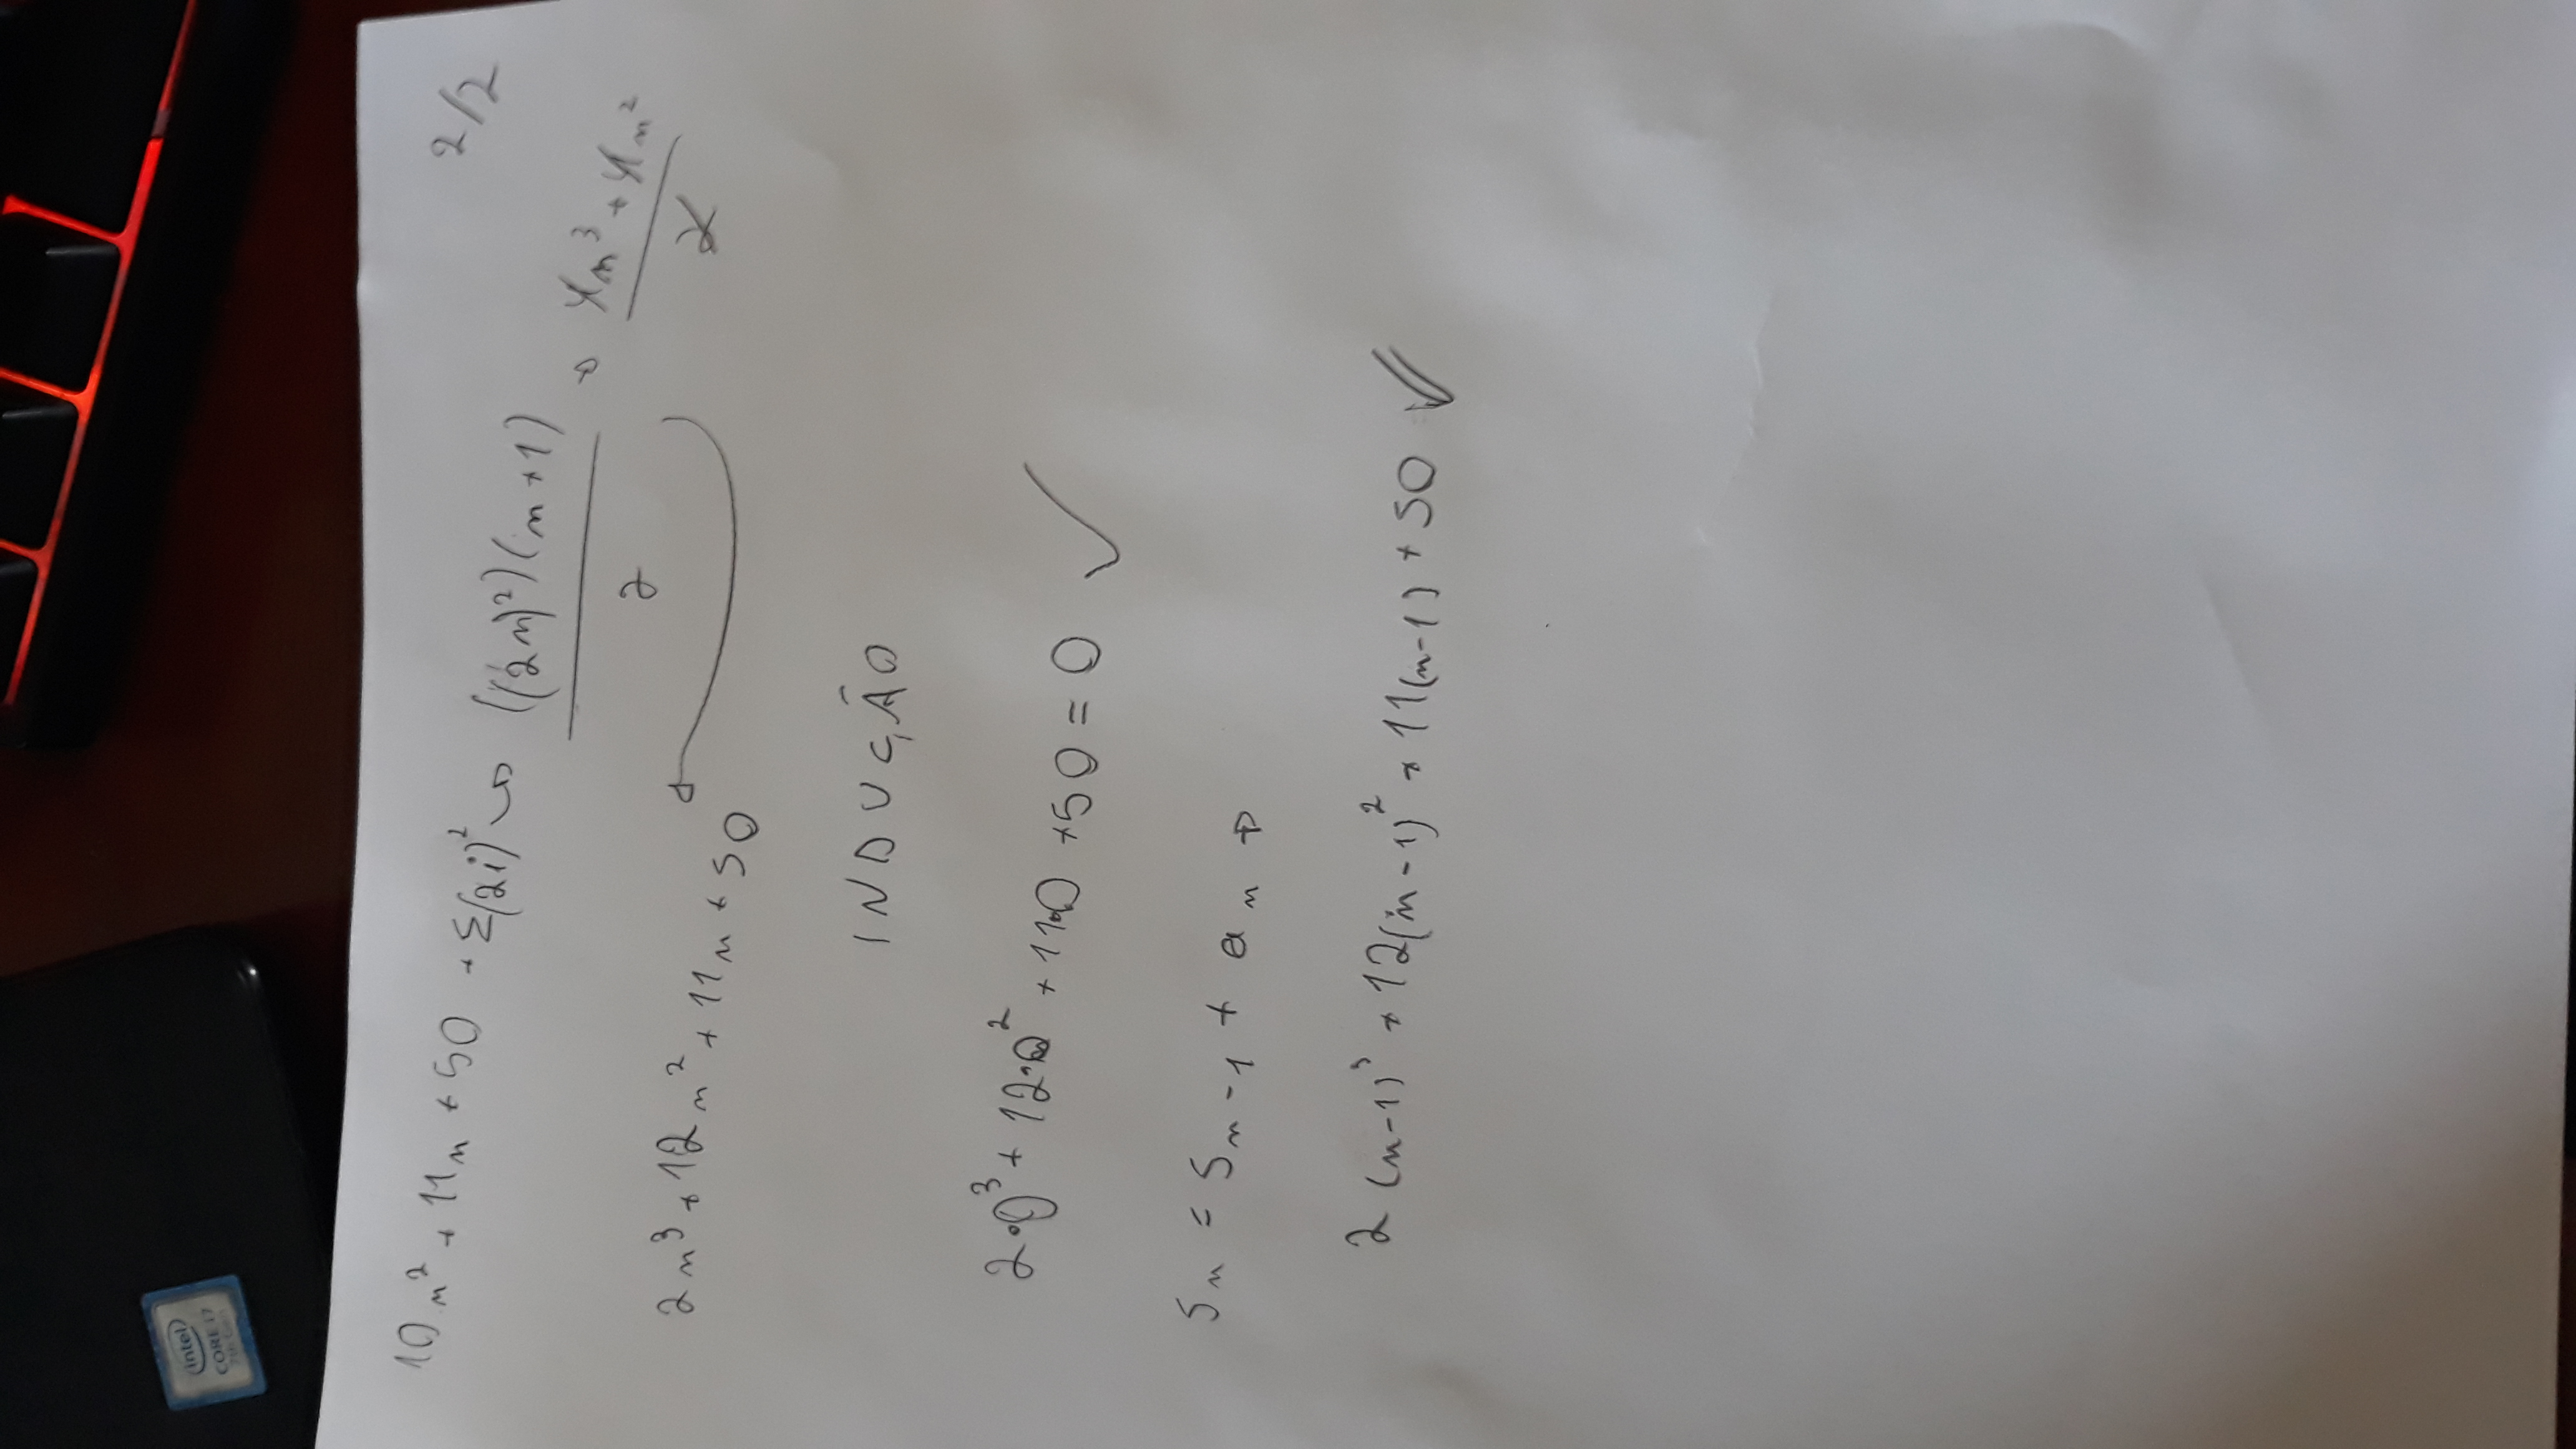 intel
CORE i7
7th Gen
2/2
10n² + 11n + 50 + Σ(2i)² ↪ ((2n)²)(n+1) / 2 → 4n³ + 4n² / 2
2n³ + 12n² + 11n + 50
INDUÇÃO
2·0³ + 12·0² + 11·0 + 50 = 0 ✓
Sn = Sn-1 + an →
2(n-1)³ + 12(n-1)² + 11(n-1) + 50 ✓